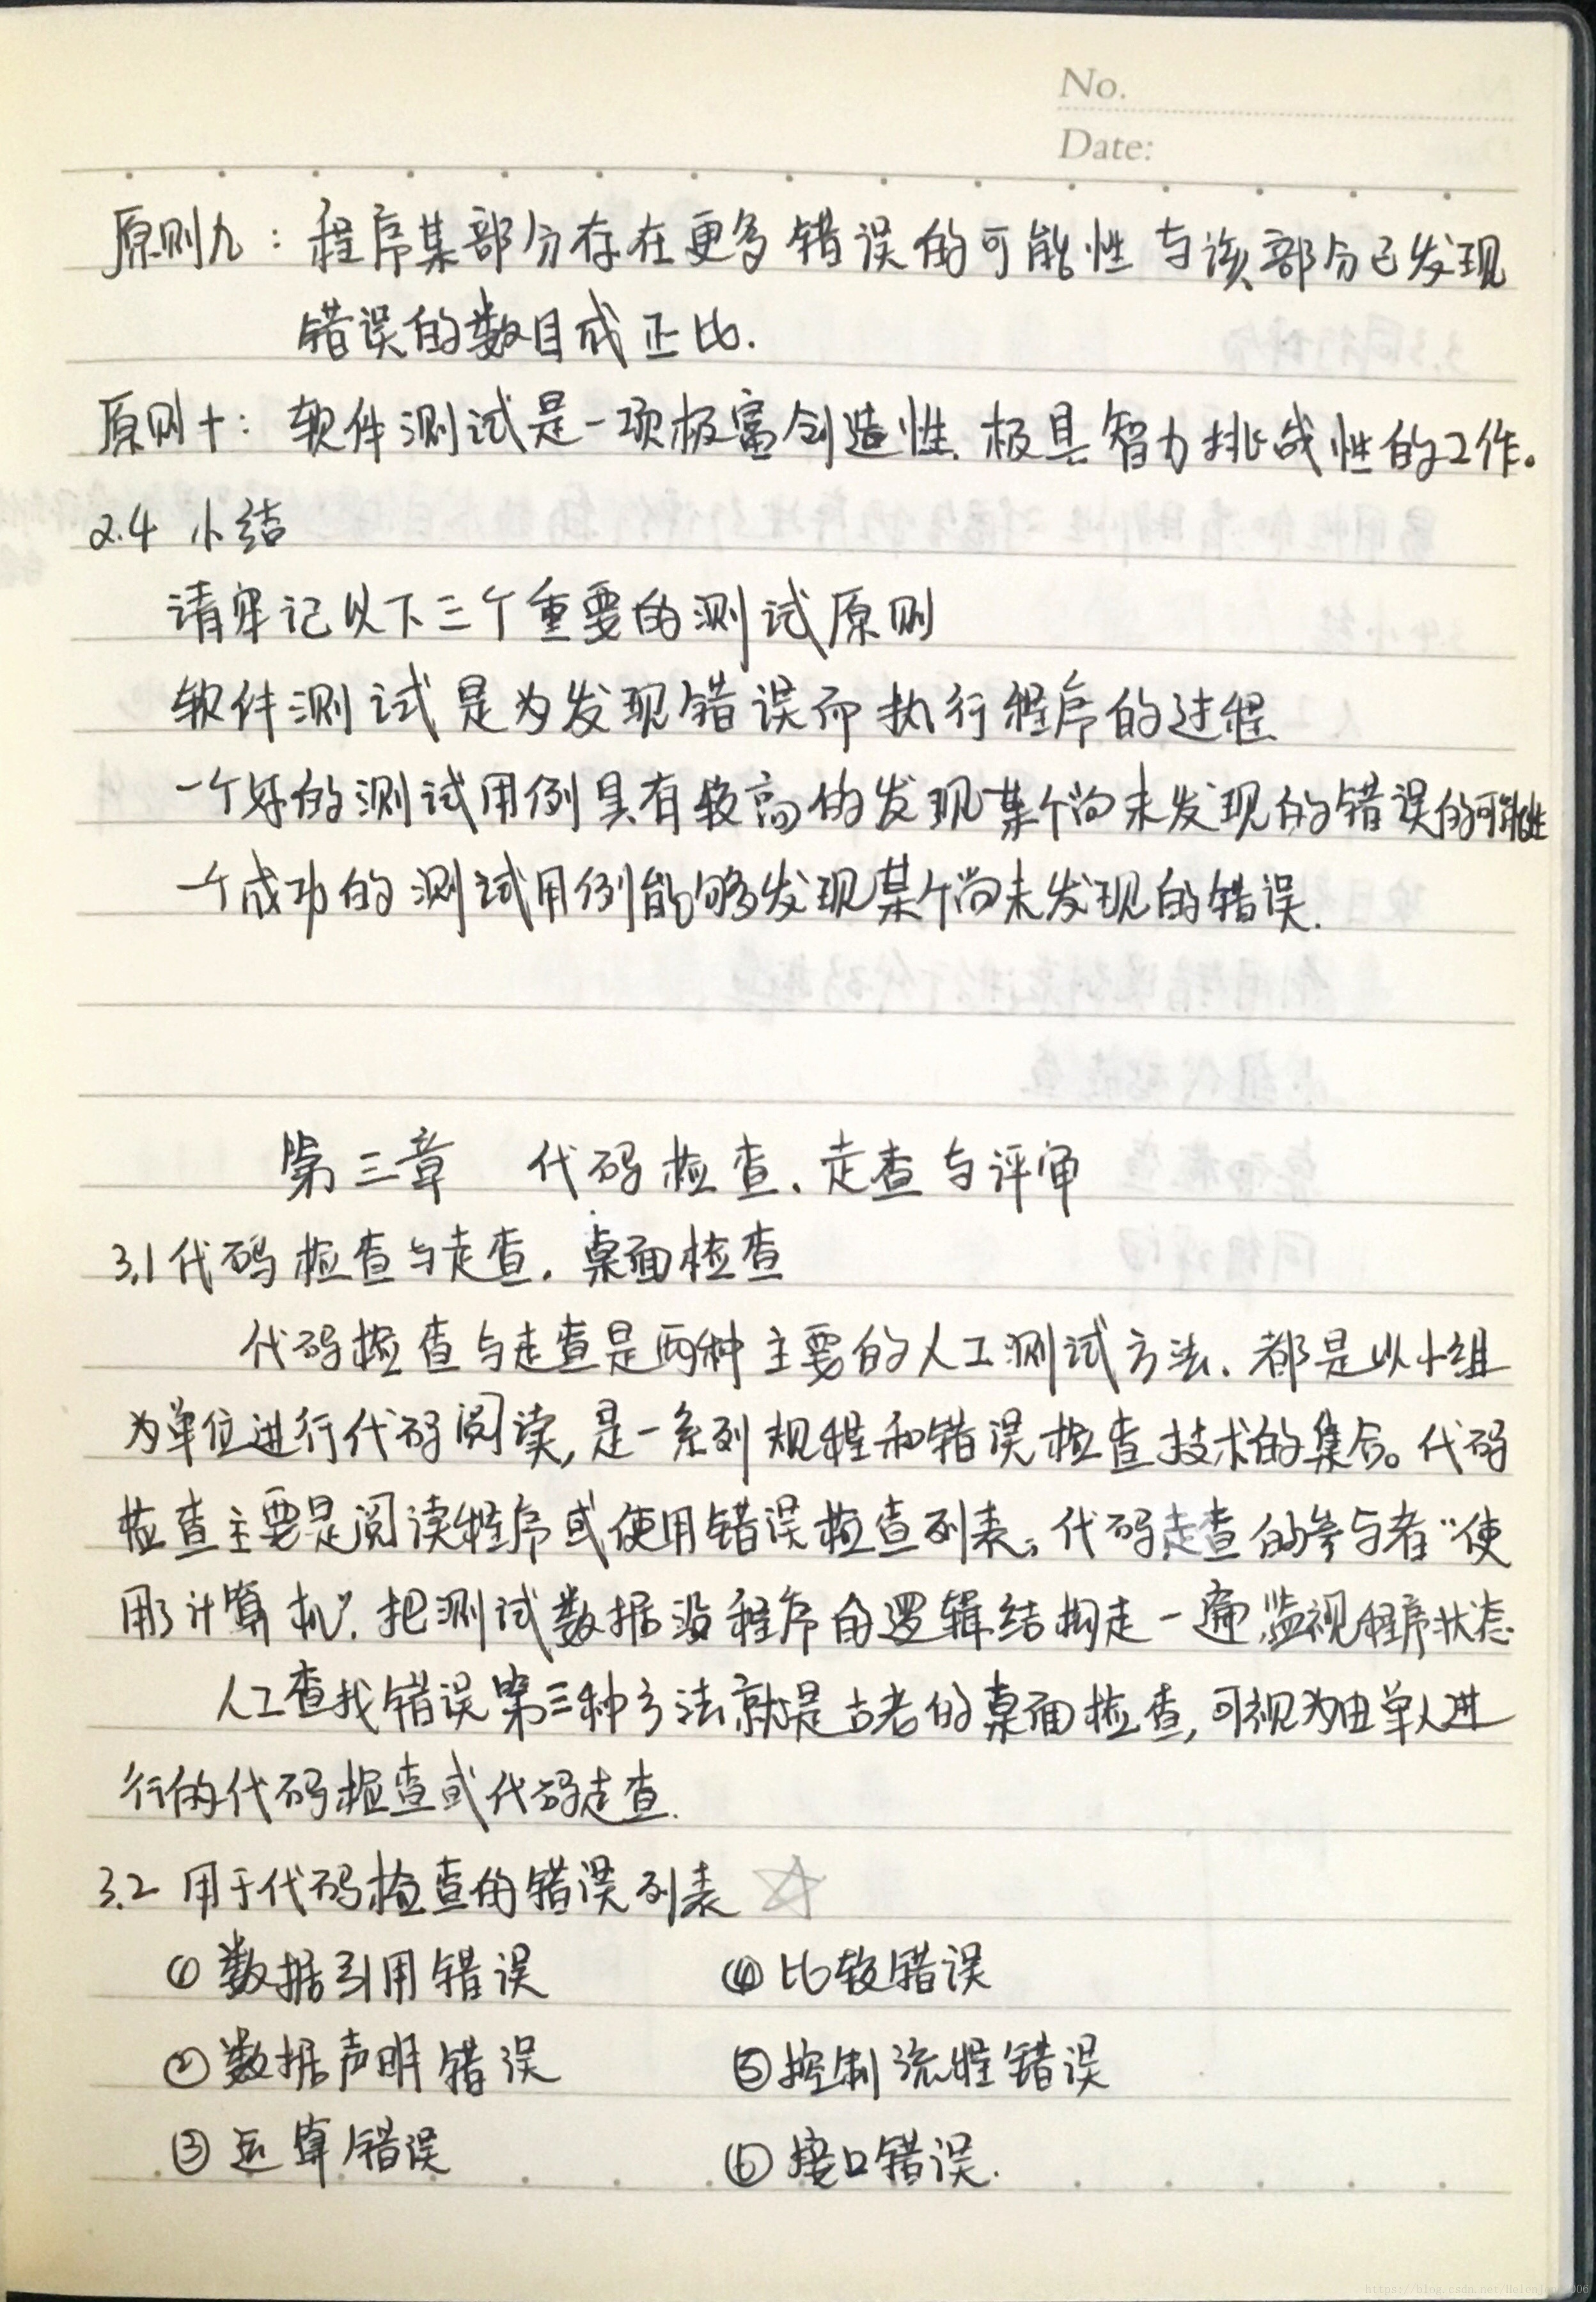 No.
Date:
原则九：程序某部分存在更多错误的可能性与该部分已发现
错误的数目成正比.
原则十：软件测试是一项极富创造性、极具智力挑战性的工作。
2.4 小结
请牢记以下三个重要的测试原则
软件测试是为发现错误而执行程序的过程
一个好的测试用例具有较高的发现某个尚未发现的错误的可能性
一个成功的测试用例能够发现某个尚未发现的错误.
第三章 代码检查、走查与评审
3.1 代码检查与走查、桌面检查
代码检查与走查是两种主要的人工测试方法、都是以小组
为单位进行代码阅读,是一系列规程和错误检查技术的集合。代码
检查主要是阅读程序或使用错误检查列表。代码走查的参与者“使
用了计算机”.把测试数据沿程序的逻辑结构走一遍,监视程序状态
人工查找错误第三种方法就是古老的桌面检查,可视为由单人进
行的代码检查或代码走查.
3.2 用于代码检查的错误列表 ☆
① 数据引用错误 ④ 比较错误
② 数据声明错误 ⑤ 控制流程错误
③ 运算错误 ⑥ 接口错误.